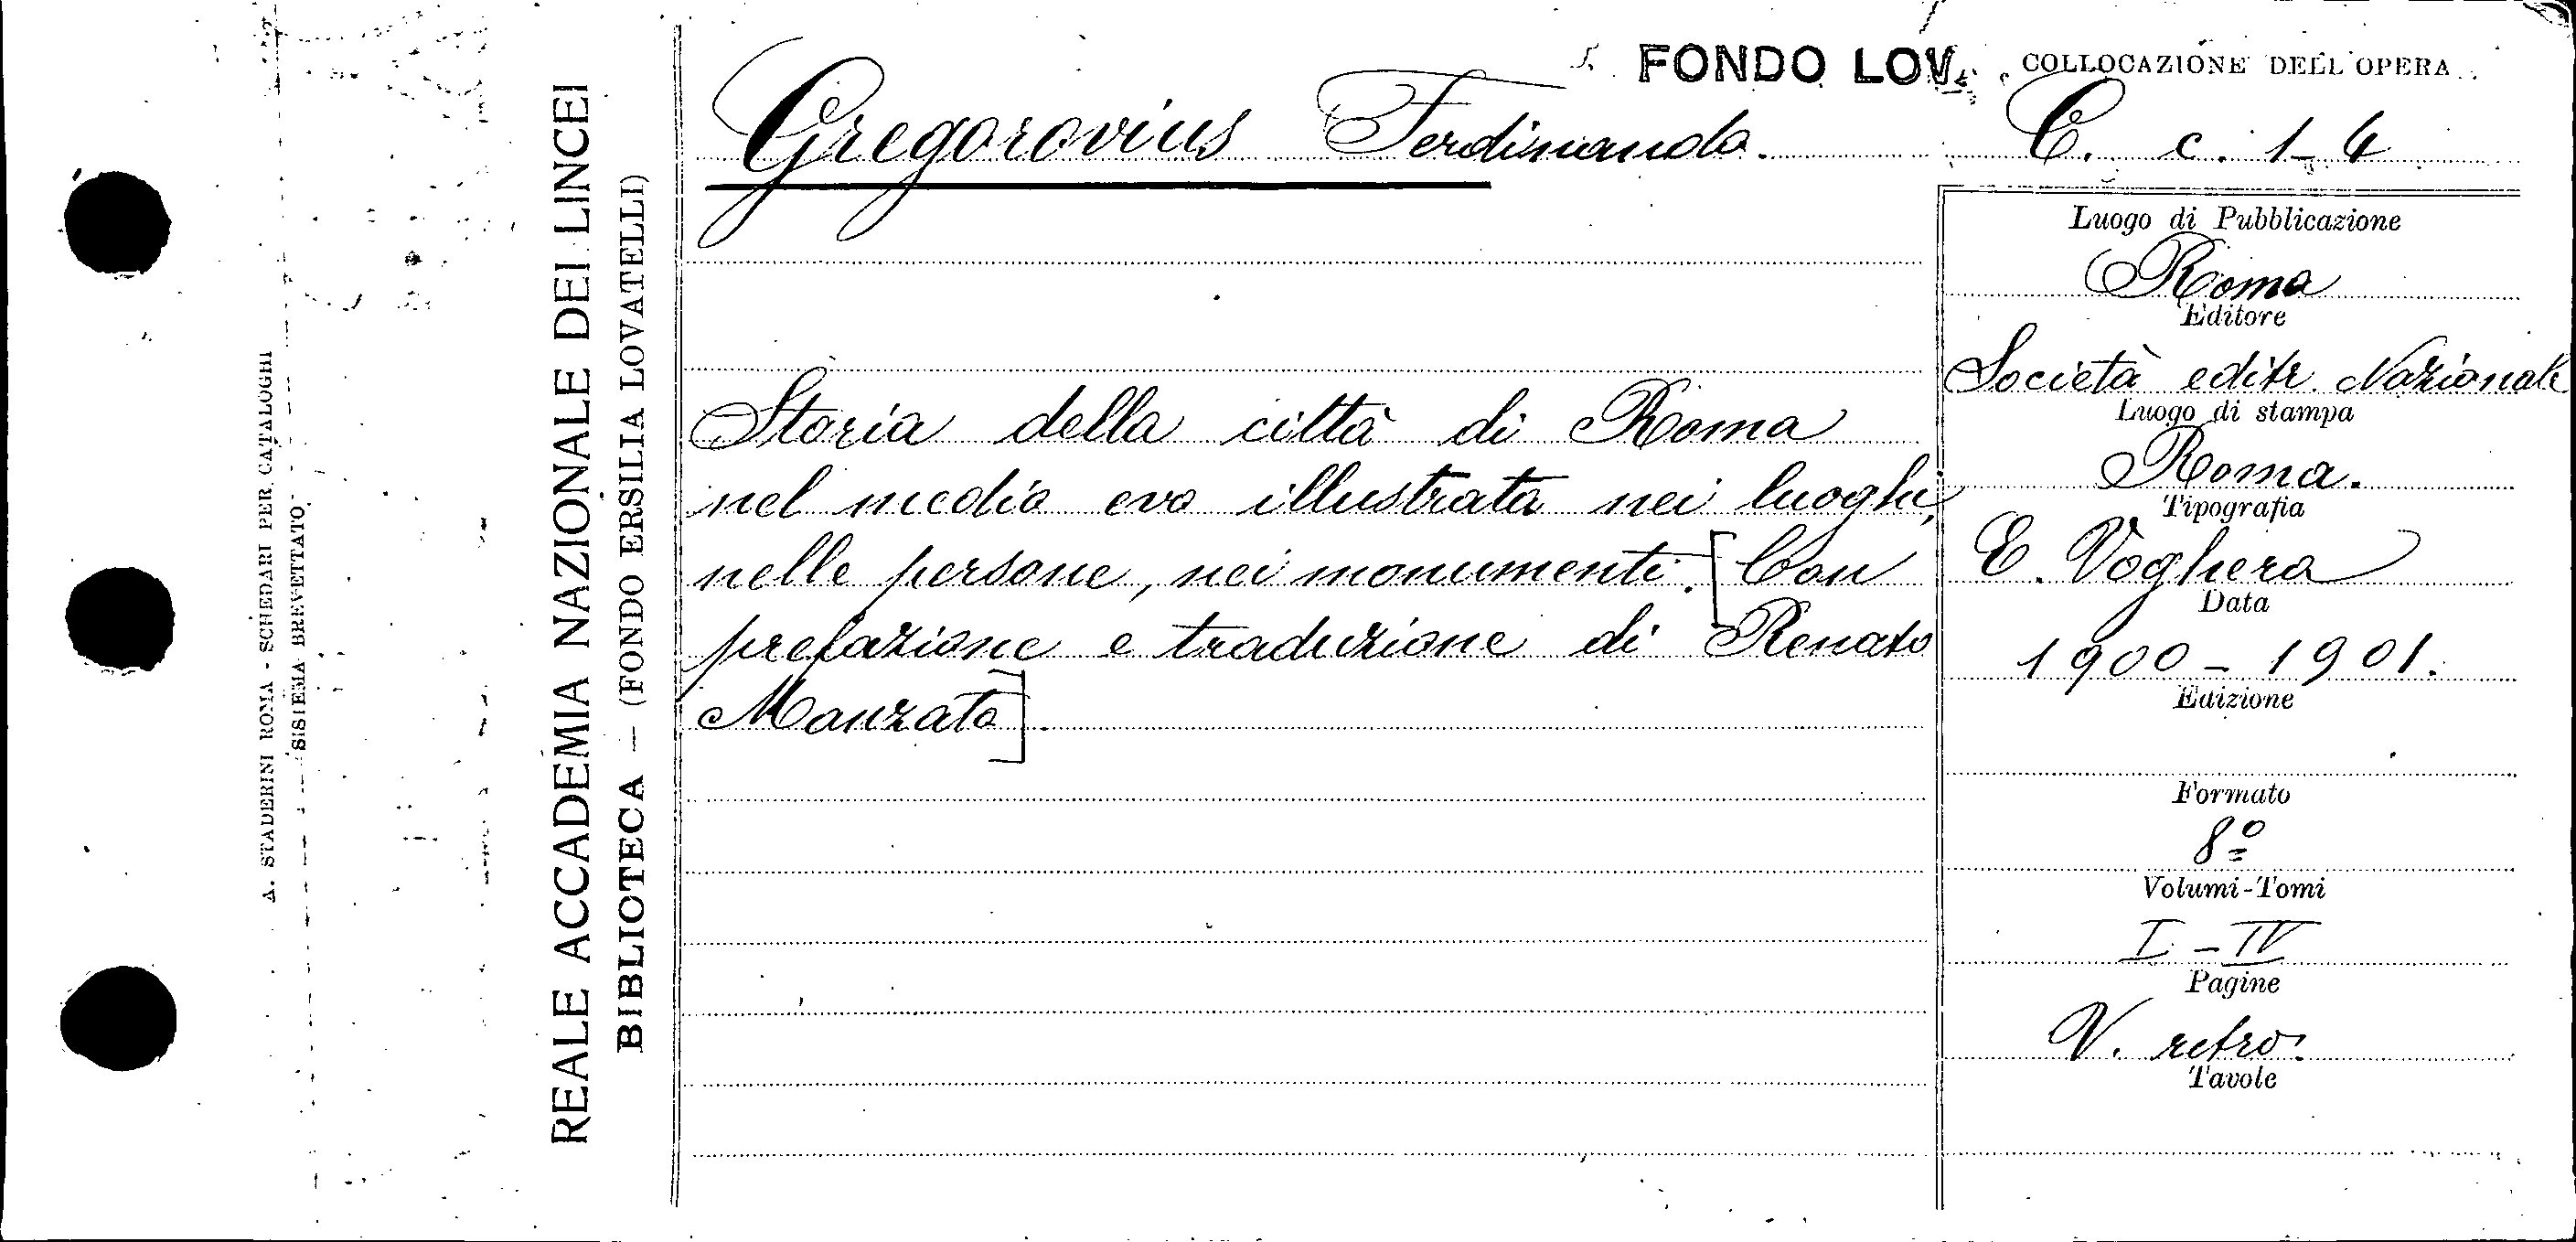 A. STADERINI ROMA - SCHEDARI PER CATALOGHI
SISTEMA BREVETTATO
REALE ACCADEMIA NAZIONALE DEI LINCEI
BIBLIOTECA — (FONDO ERSILIA LOVATELLI)
FONDO LOV.
Gregorovius Ferdinando.
Storia della città di Roma
nel medio evo illustrata nei luoghi,
nelle persone, nei monumenti. [Con
prefazione e traduzione di Renato
Manzato].
COLLOCAZIONE DELL'OPERA
C. c. 1-4
Luogo di Pubblicazione
Roma
Editore
Società editr. Nazionale
Luogo di stampa
Roma.
Tipografia
E. Voghera
Data
1900-1901.
Edizione
Formato
8º
Volumi-Tomi
I-IV
Pagine
V. retro.
Tavole